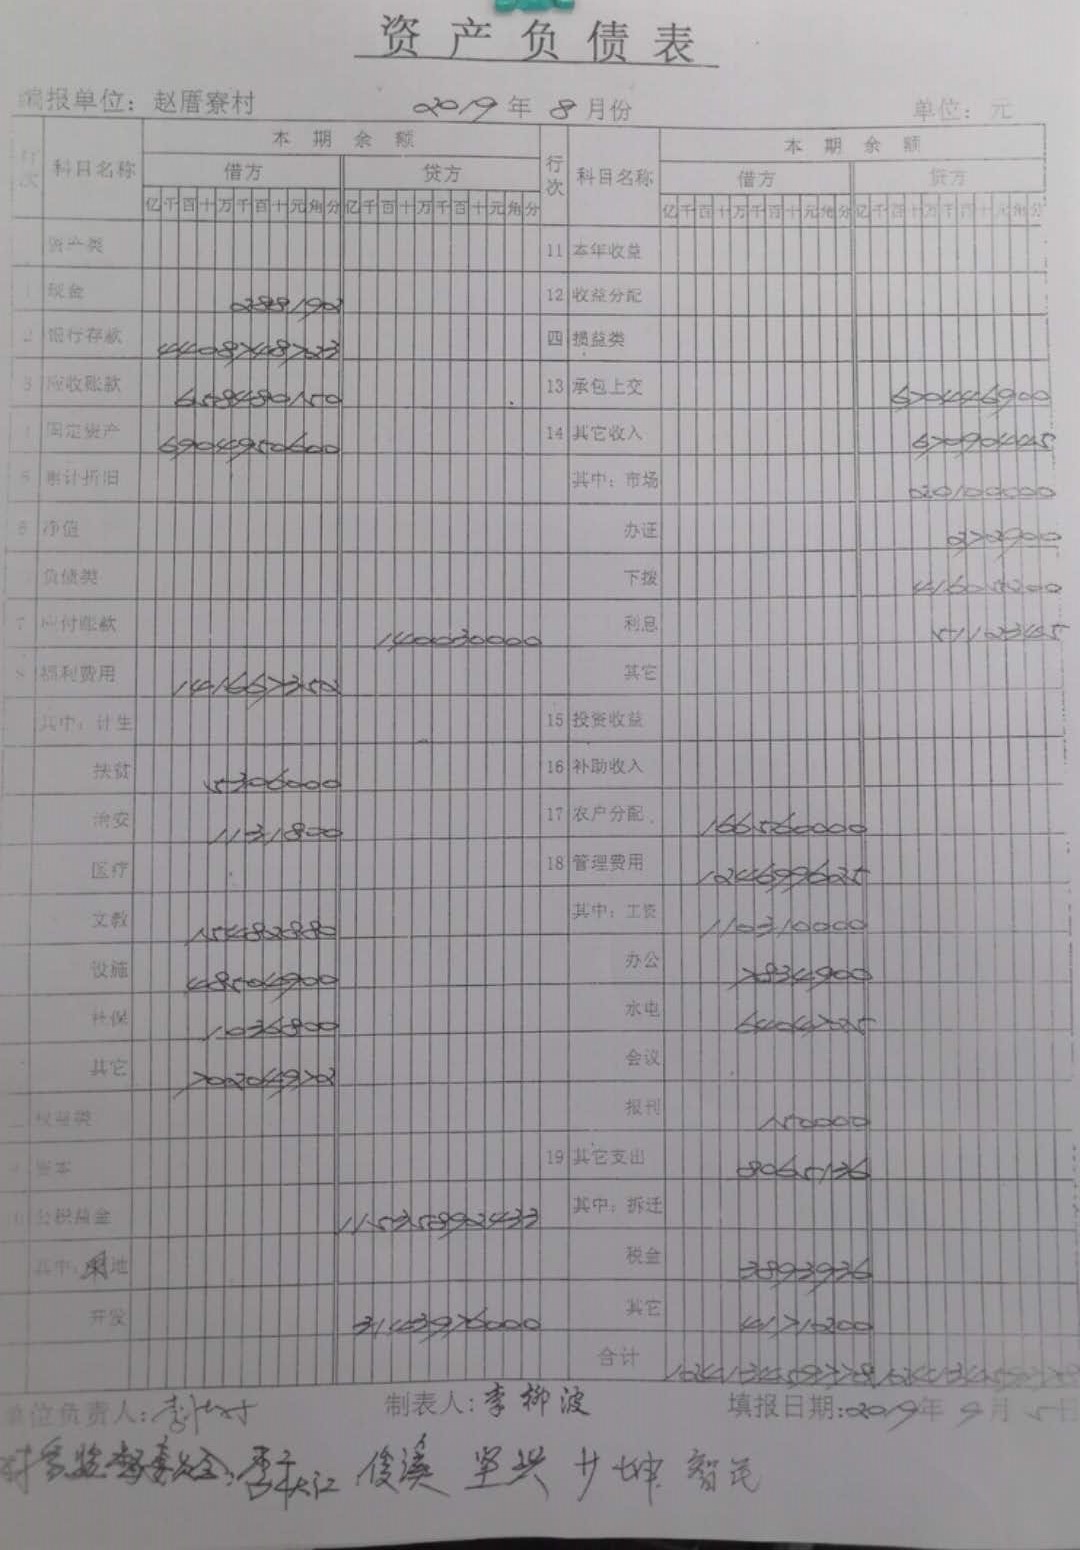 资产负债表
编报单位：赵厝寮村 2019年8月份 单位：元
行次 科目名称 本期余额 行次 科目名称 本期余额
借方 贷方 借方 贷方
亿千百十万千百十元角分 亿千百十万千百十元角分 亿千百十万千百十元角分 亿千百十万千百十元角分
资产类 11 本年收益
1 现金 288192 12 收益分配
2 银行存款 4408748723 四 损益类
3 应收账款 658480150 13 承包上交 670446900
4 固定资产 6904950600 14 其它收入 67090445
5 累计折旧 其中：市场 20100000
6 净值 办证 272900
负债类 下拨 41605200
7 应付账款 140030000 利息 5112345
8 福利费用 141667352 其它
其中：计生 15 投资收益
扶贫 5306000 16 补助收入
治安 1131800 17 农户分配 166560000
医疗 18 管理费用 124699625
文教 15482880 其中：工资 110310000
设施 48504900 办公 7834900
社保 1036800 水电 6404725
其它 70204972 会议
权益类 报刊 150000
资本 19 其它支出 8065136
公积益金 11535892433 其中：拆迁
其中： 地 税金 3893936
开发 3143976000 其它 4171200
合计 12413459778 12413459778
单位负责人： 制表人：李柳波 填报日期：2019年9月5日
俊溪 坚兴 智民